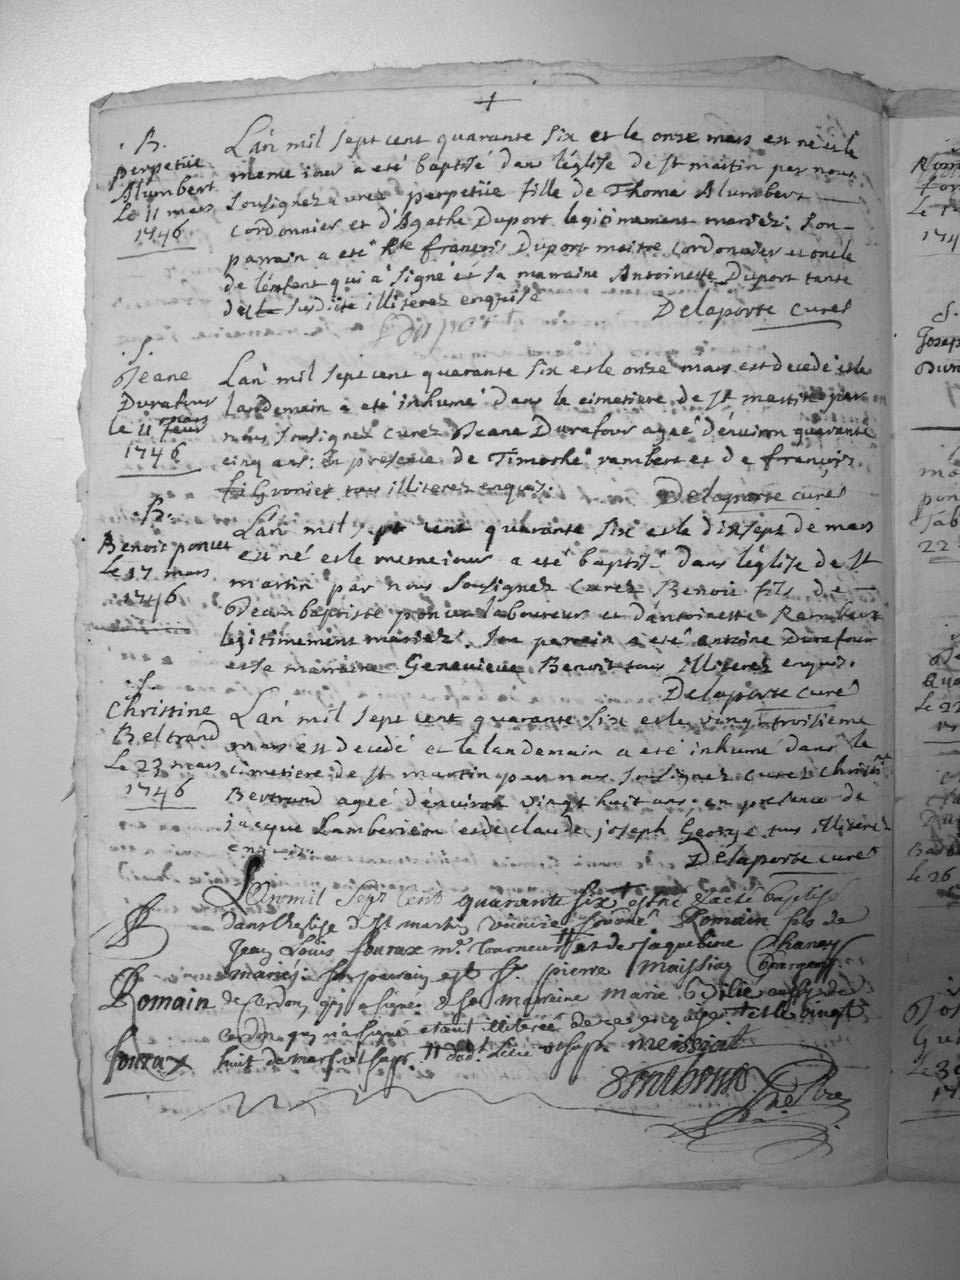 +
B.
perpetüe
Alumbert
Le 11 mars
1746
L'an mil sept cent quarante six et le onze mars est né et le
meme iour a eté baptisé dans léglise de st martin par nous
sousignez curez perpetüe fille de Thoma Alumbert
cordonnier et d'Agathe Duport legitimement mariez: son
parrain a eté françois Duport maitre cordonnier et oncle
de lénfent qui a signé et sa marraine Antoinette Duport tante
susdite illiterez enquise
Delaporte curé
Duport
S.
Jeane
Durafour
le 11 mars
1746
L'an mil sept cent quarante six et le onze mars est decedé et le
landemain a eté inhumé dans le cimetiere de st martin par
nous sousignez curez Jeane Durafour ageé d'environ quarante
cinq ans: en presence de Timothé rambert et de françois
Gronier tous illiterez enquis.
Delaporte curé
B.
Benoit poncet
Le 17 mars
1746
L'an mil sept cent quarante six et le dixsept de mars
est né et le meme iour a eté baptisé dans léglise de st
martin par nous sousignez curez Benoit fils de
Jean baptiste poncet laboureur et d'antoinette Rambert
legitimement mariez. Son parrain a eté antoine Durafour
et sa marraine Genevieve Benoit tous illiterez enquis.
Delaporte curé
S.
Christine
Beltrand
Le 23 mars
1746
L'an mil sept cent quarante six et le vingt troisieme
mars est decedé et le landemain a eté inhumé dans le
cimetiere de st martin par nous sousignez curez christine
Bertrand ageé d'environ vingt huit ans: en presence de
jacque Lamberieon et de claude joseph George tous illiterez
enquis.
Delaporte curé
Romain
fourax
L'an mil sept cent quarante six est né et a eté baptisé
dans l'eglise de st martin Romain fils de
Jean Louis fourax mᵉ tourneur et de jaqueline Chanay
mariés son parrain est Sʳ pierre Maissiat Bourgeois
de Cerdon qui a signé et sa marraine marie aussy de
cerdon qui n'a signé etant illiteré de ce enquise et le vingt
huit de mars
messiat